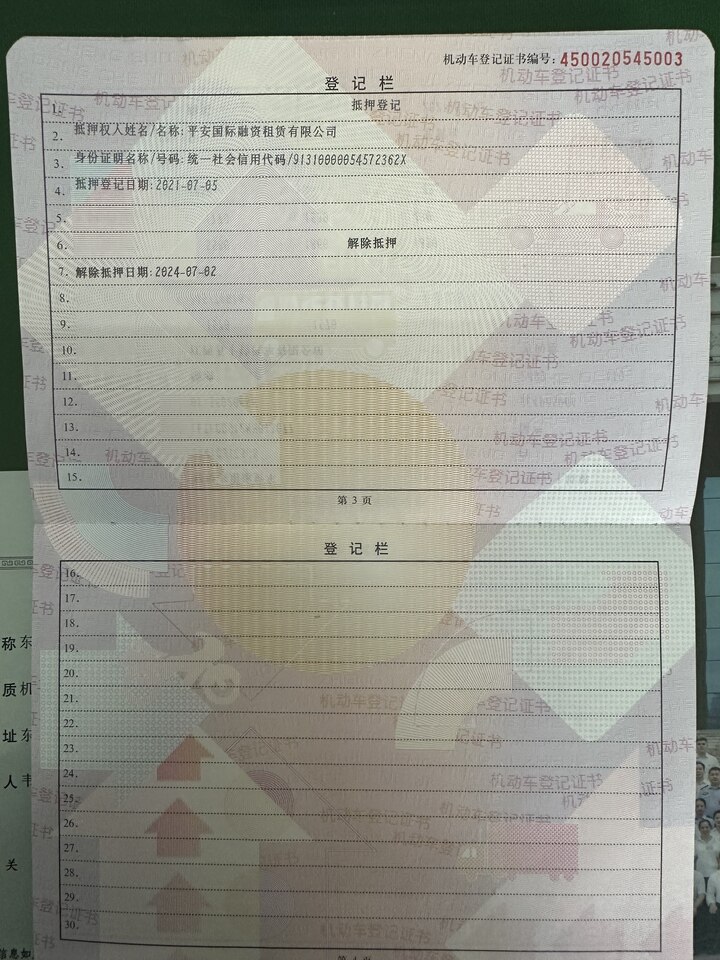 机动车登记证书编号: 450020545003
登记栏
1. 抵押登记
2. 抵押权人姓名/名称: 平安国际融资租赁有限公司
3. 身份证明名称/号码: 统一社会信用代码/91310000054572362X
4. 抵押登记日期: 2021-07-05
5.
6. 解除抵押
7. 解除抵押日期: 2024-07-02
8.
9.
10.
11.
12.
13.
14.
15.
第 3 页
登记栏
16.
17.
18.
19.
20.
21.
22.
23.
24.
25.
26.
27.
28.
29.
30.
称 东
质 机
址 东
人
关
信息如